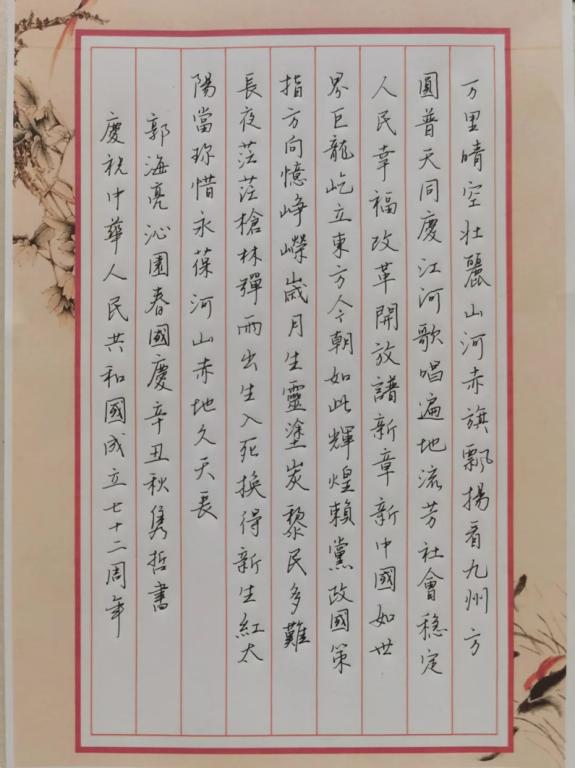 万里晴空壯麗山河赤旗飄揚看九州方
圓普天同慶江河歌唱遍地流芳社會穩定
人民幸福改革開放譜新章新中國如世
界巨龍屹立東方今朝如此輝煌賴黨政國策
指方向憶崢嶸歲月生靈塗炭黎民多難
長夜茫茫槍林彈雨出生入死換得新生紅太
陽當珍惜永葆河山赤地久天長
郭海亮沁園春國慶辛丑秋雋哲書
慶祝中華人民共和國成立七十二周年